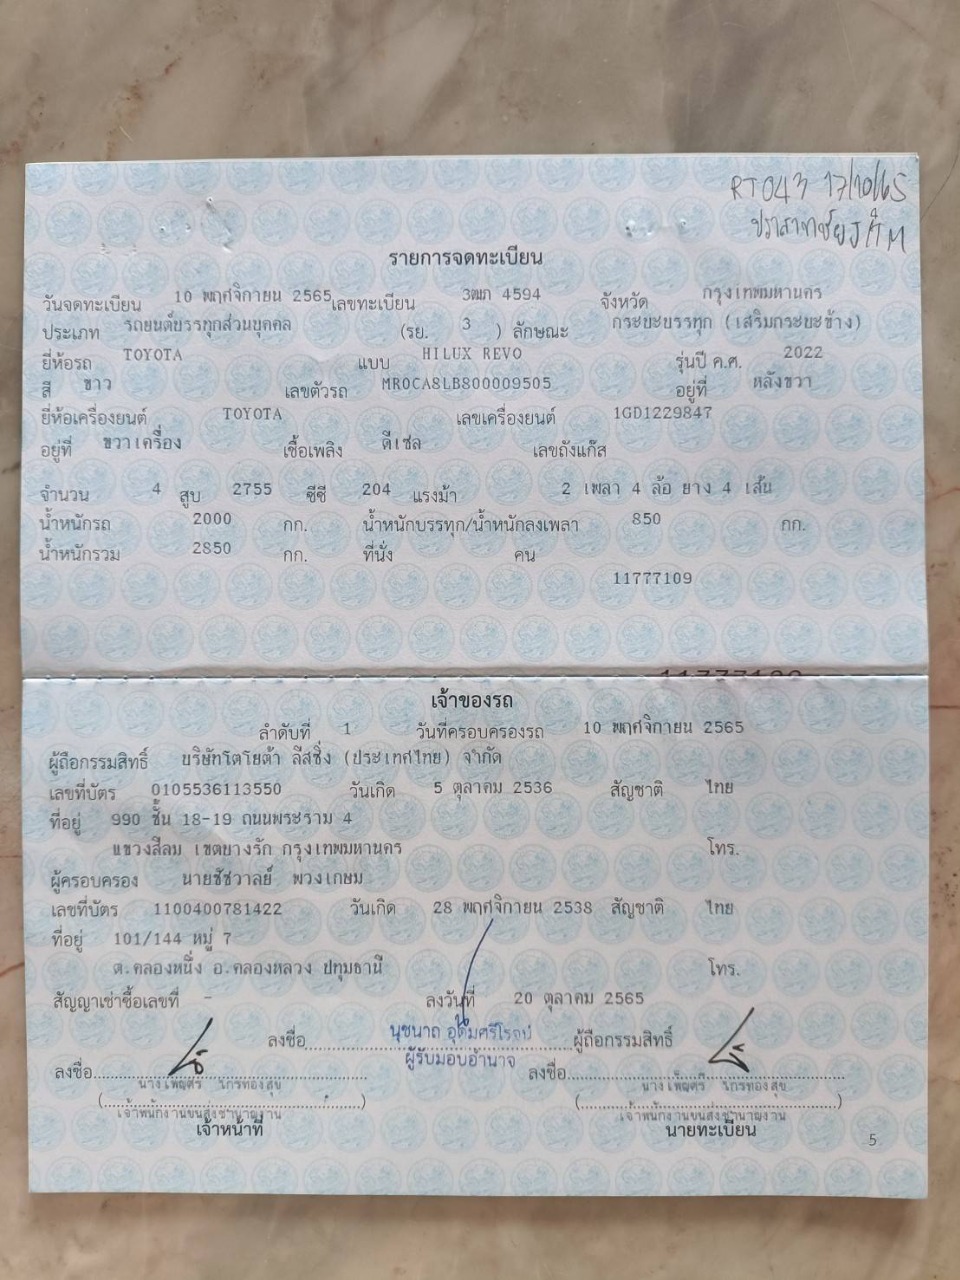 RT043 17/10/65
รายการจดทะเบียน
วันจดทะเบียน 10 พฤศจิกายน 2565 เลขทะเบียน 3ฒภ 4594 จังหวัด กรุงเทพมหานคร
ประเภท รถยนต์บรรทุกส่วนบุคคล (รย. 3 ) ลักษณะ กระบะบรรทุก (เสริมกระบะข้าง)
ยี่ห้อรถ TOYOTA แบบ HILUX REVO รุ่นปี ค.ศ. 2022
สี ขาว เลขตัวรถ MR0CA8LB800009505 อยู่ที่ หลังขวา
ยี่ห้อเครื่องยนต์ TOYOTA เลขเครื่องยนต์ 1GD1229847
อยู่ที่ ขวาเครื่อง เชื้อเพลิง ดีเซล เลขถังแก๊ส
จำนวน 4 สูบ 2755 ซีซี 204 แรงม้า 2 เพลา 4 ล้อ ยาง 4 เส้น
น้ำหนักรถ 2000 กก. น้ำหนักบรรทุก/น้ำหนักลงเพลา 850 กก.
น้ำหนักรวม 2850 กก. ที่นั่ง คน
11777109
เจ้าของรถ
ลำดับที่ 1 วันที่ครอบครองรถ 10 พฤศจิกายน 2565
ผู้ถือกรรมสิทธิ์ บริษัทโตโยต้า ลีสซิ่ง (ประเทศไทย) จำกัด
เลขที่บัตร 0105536113550 วันเกิด 5 ตุลาคม 2536 สัญชาติ ไทย
ที่อยู่ 990 ชั้น 18-19 ถนนพระราม 4
แขวงสีลม เขตบางรัก กรุงเทพมหานคร โทร.
ผู้ครอบครอง นายชัชวาลย์ พวงเกษม
เลขที่บัตร 1100400781422 วันเกิด 28 พฤศจิกายน 2538 สัญชาติ ไทย
ที่อยู่ 101/144 หมู่ 7
ต.คลองหนึ่ง อ.คลองหลวง ปทุมธานี โทร.
สัญญาเช่าซื้อเลขที่ - ลงวันที่ 20 ตุลาคม 2565
ลงชื่อ นุชนาถ อุดมศรีโรจน์ ผู้ถือกรรมสิทธิ์
ผู้รับมอบอำนาจ
ลงชื่อ ลงชื่อ
นางเพ็ญศรี นางเพ็ญศรี
เจ้าพนักงานขนส่งชำนาญงาน เจ้าพนักงานขนส่งชำนาญงาน
เจ้าหน้าที่ นายทะเบียน
5